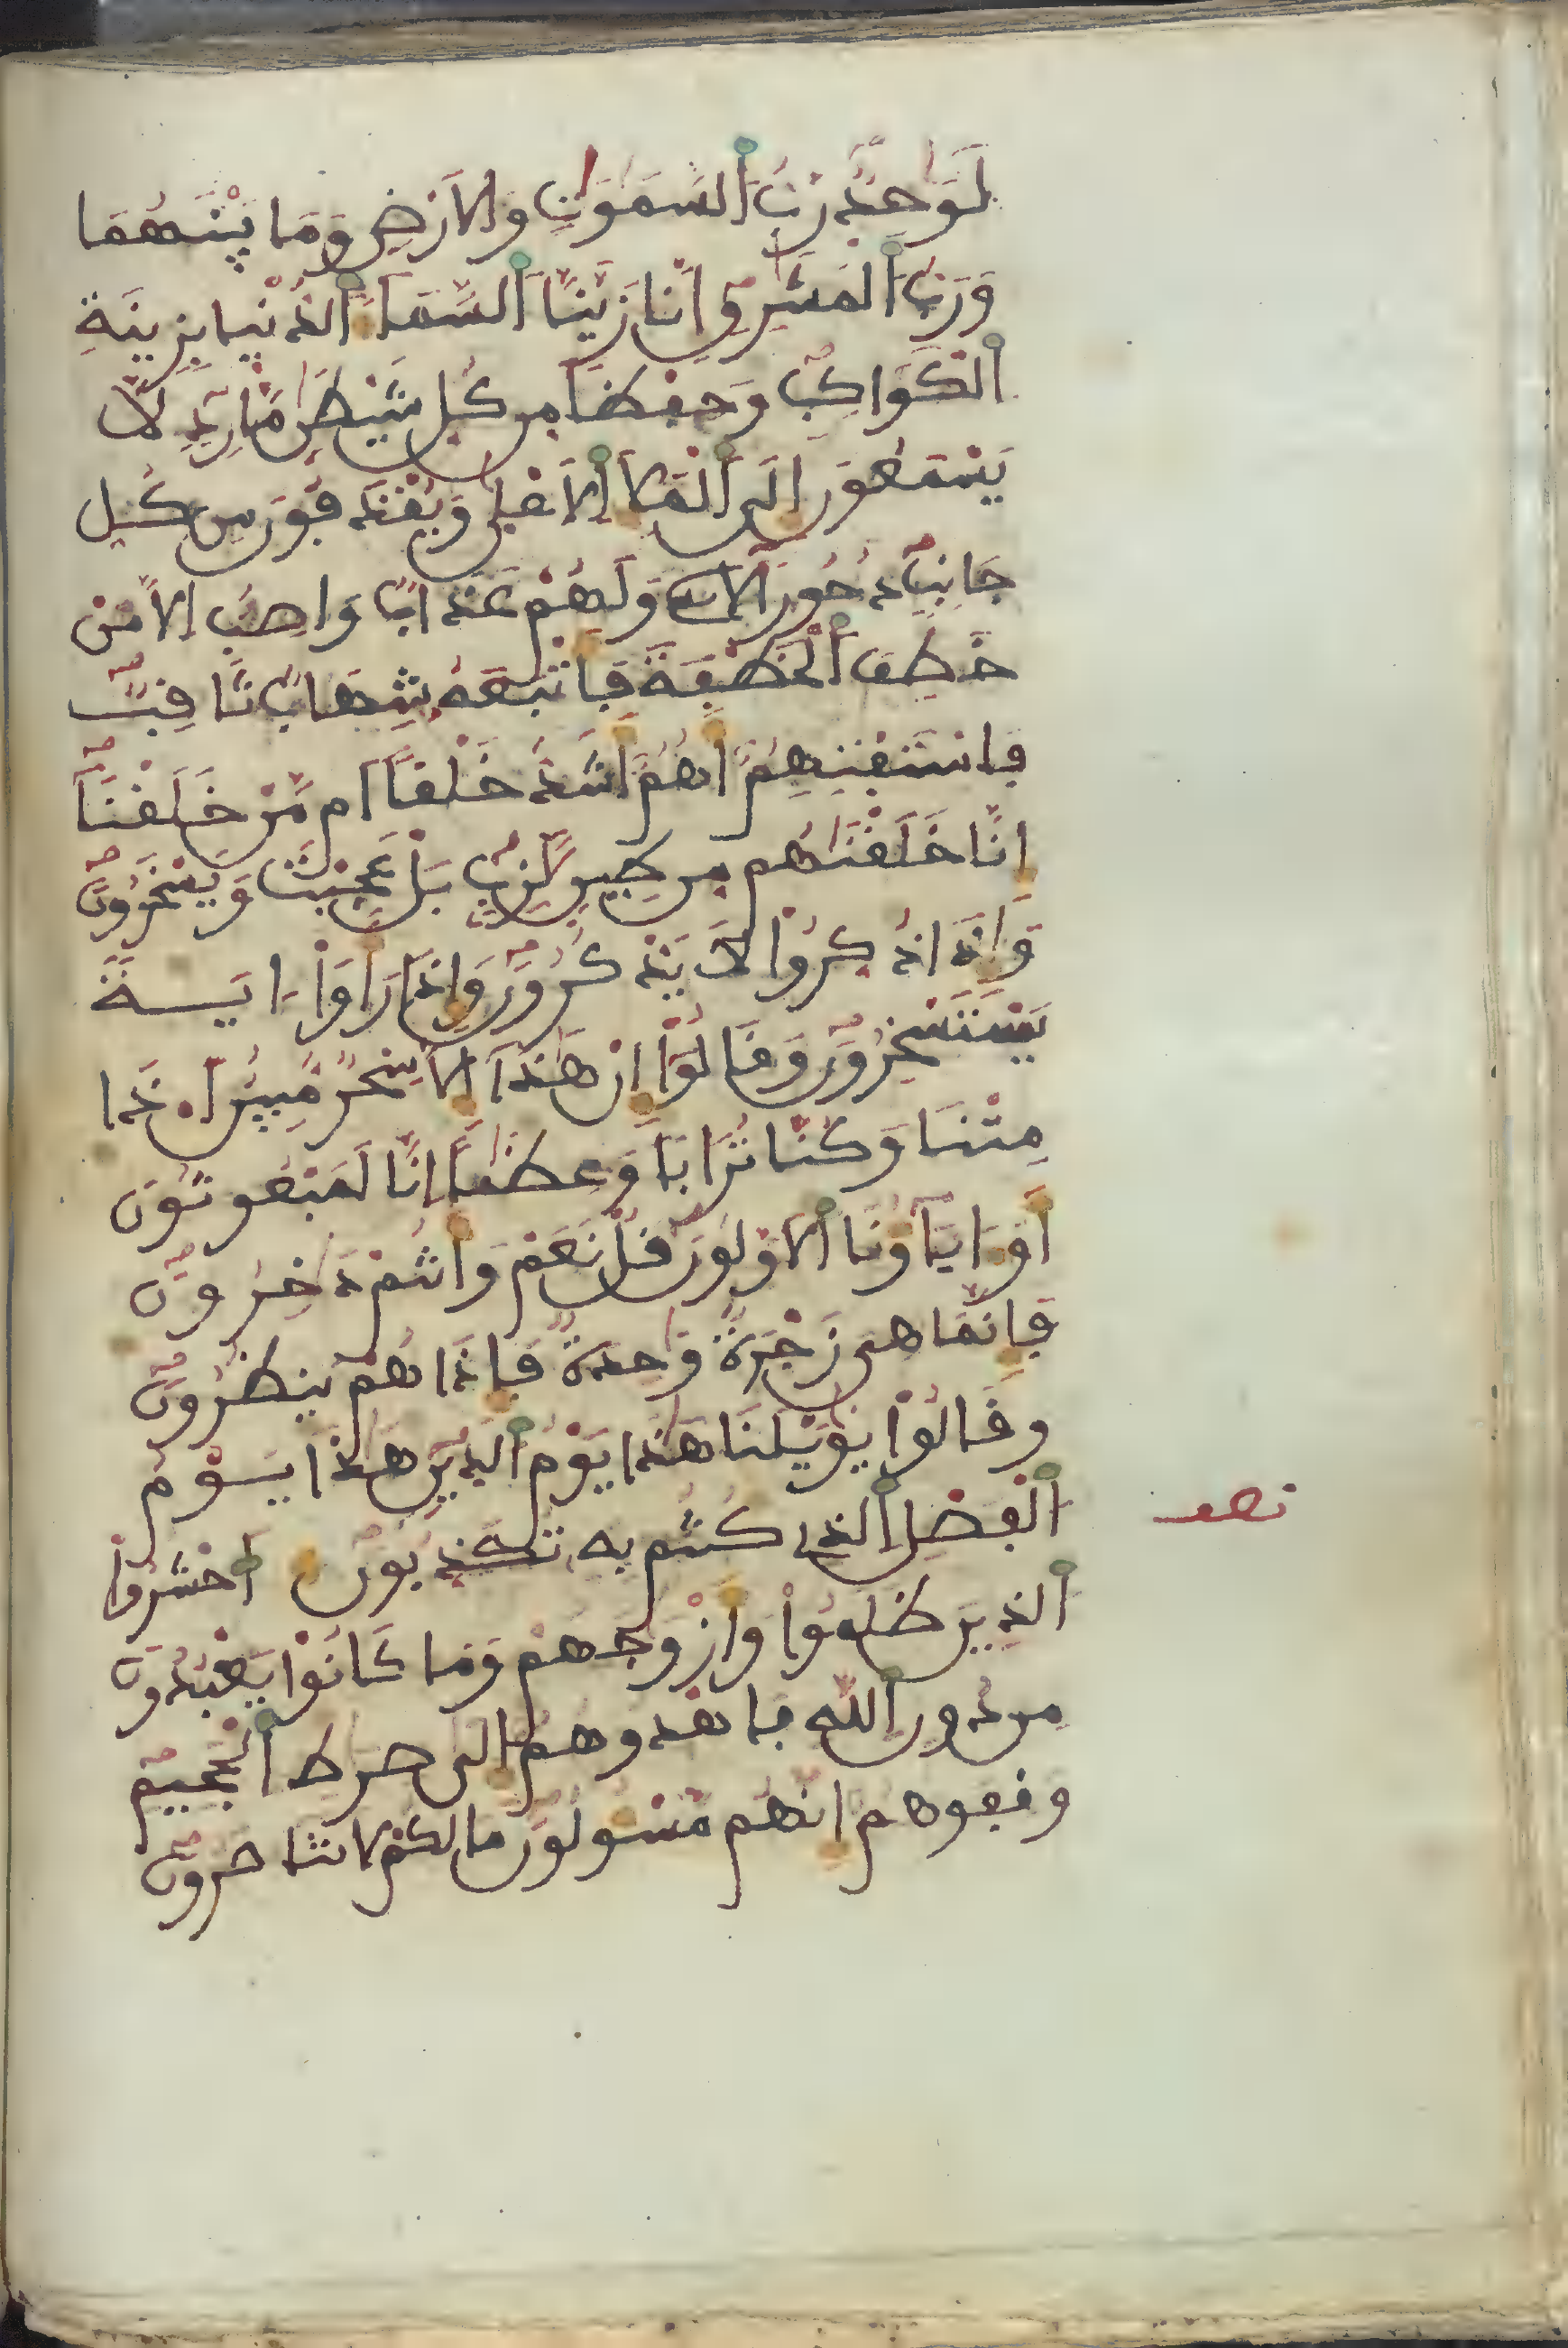 لَوَٰحِدٌ رَّبُّ اُ۬لسَّمَٰوَٰتِ وَالَارْضِ وَمَا بَيْنَهُمَا
وَرَبُّ اُ۬لْمَشَٰرِقِ إِنَّا زَيَّنَّا اَ۬لسَّمَآءَ اَ۬لدُّنْيَا بِزِينَةِ
اِ۬لْكَوَاكِبِ وَحِفْظاً مِّن كُلِّ شَيْطَٰنٍ مَّارِدٍ لَّا
يَسْمَعُونَ إِلَى اَ۬لْمَلَإِ اِ۬لَاعْلَىٰ وَيُقْذَفُونَ مِن كُلِّ
جَانِبٍ دُحُوراً وَلَهُمْ عَذَابٌ وَاصِبٌ اِلَّا مَنْ
خَطِفَ اَ۬لْخَطْفَةَ فَأَتْبَعَهُۥ شِهَابٌ ثَاقِبٌ
فَاسْتَفْتِهِمُۥٓ أَهُمُۥٓ أَشَدُّ خَلْقاً اَم مَّنْ خَلَقْنَآ
إِنَّا خَلَقْنَٰهُم مِّن طِينٍ لَّازِبٍ بَلْ عَجِبْتَ وَيَسْخَرُونَ
وَإِذَا ذُكِّرُواْ لَا يَذْكُرُونَ وَإِذَا رَأَوَاْ ايَةً
يَسْتَسْخِرُونَ وَقَالُوٓاْ إِنْ هَٰذَآ إِلَّا سِحْرٌ مُّبِينٌ اَ۟ذَا
مِتْنَا وَكُنَّا تُرَاباً وَعِظَٰماً اِنَّا لَمَبْعُوثُونَ
أَوَءَابَآؤُنَا اَ۬لَاوَّلُونَ قُلْ نَعَمْ وَأَنتُمْ دَٰخِرُونَ
فَإِنَّمَا هِىَ زَجْرَةٌ وَٰحِدَةٌ فَإِذَا هُمْ يَنظُرُونَ
وَقَالُواْ يَٰوَيْلَنَا هَٰذَا يَوْمُ اُ۬لدِّينِ هَٰذَا يَوْمُ
اُ۬لْفَصْلِ اِ۬لذِے كُنتُم بِهِۦ تُكَذِّبُونَ اَ۟حْشُرُواْ
نصف
اُ۬لذِينَ ظَلَمُواْ وَأَزْوَٰجَهُمْ وَمَا كَانُواْ يَعْبُدُونَ
مِن دُونِ اِ۬للَّهِ فَاهْدُوهُمُۥٓ إِلَىٰ صِرَٰطِ اِ۬لْجَحِيمِ
وَقِفُوهُمُۥٓ إِنَّهُم مَّسْـُٔولُونَ مَا لَكُمْ لَا تَنَاصَرُونَ